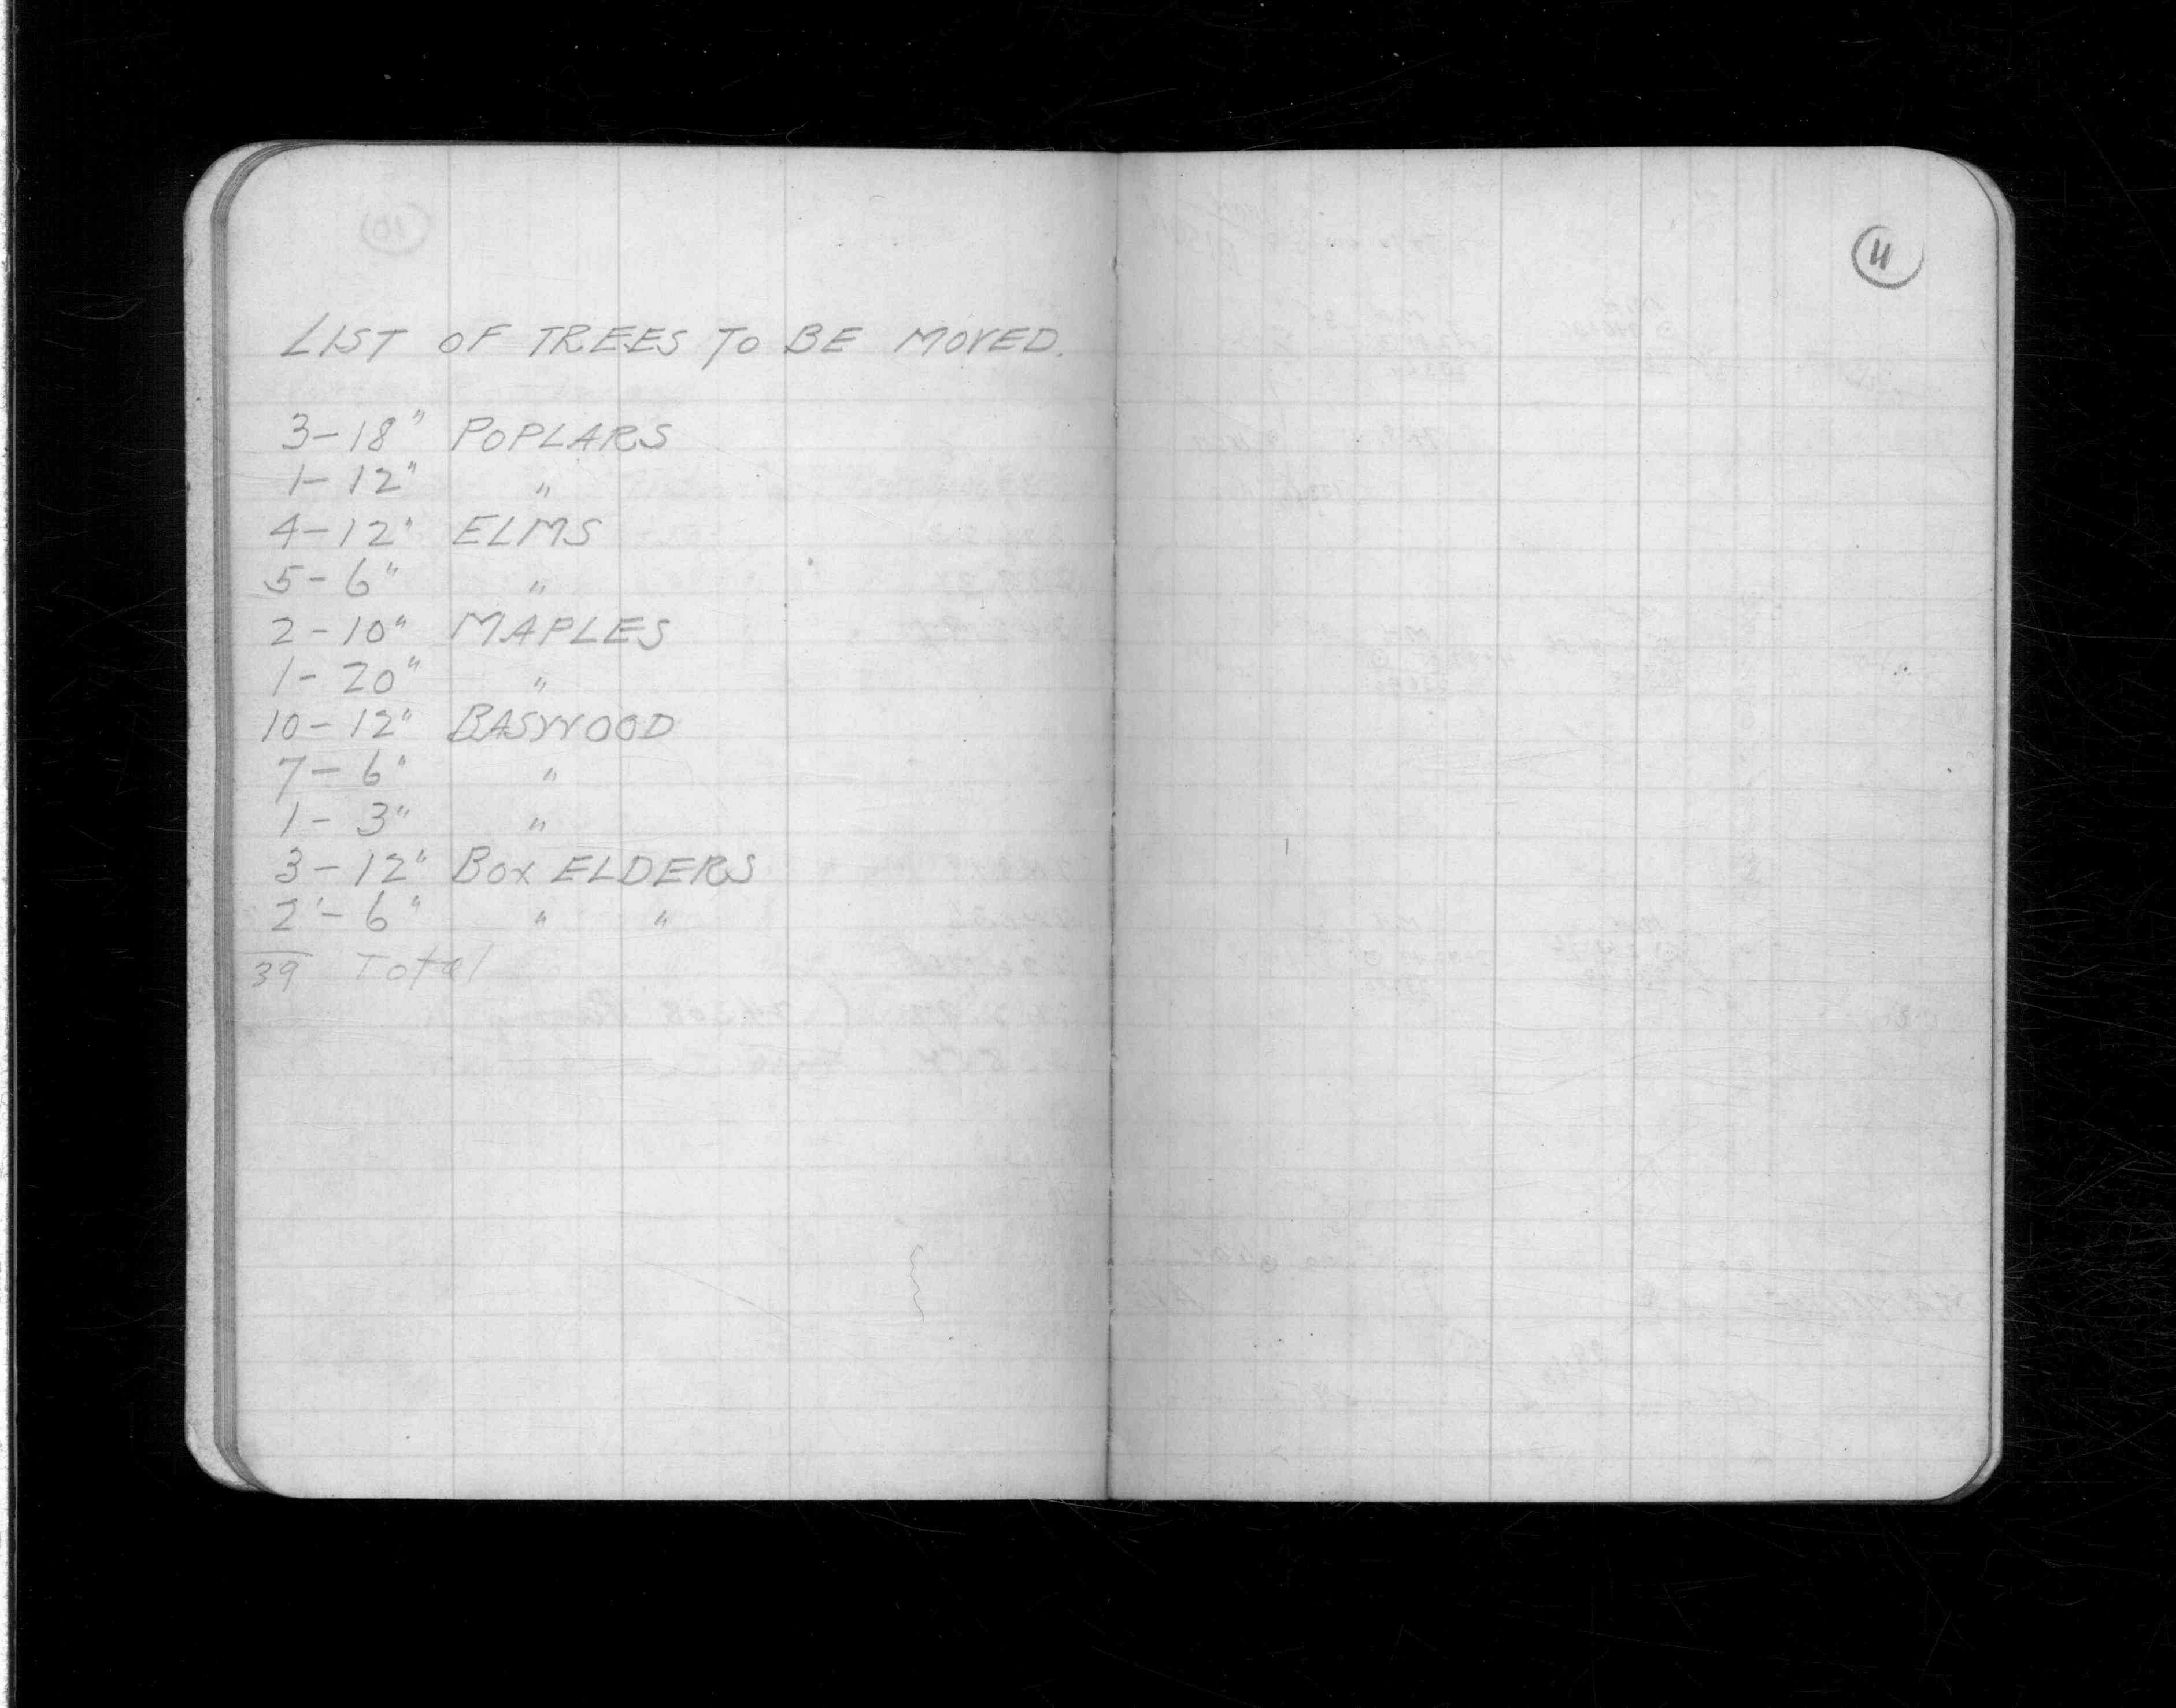 LIST OF TREES TO BE MOVED.
3-18" POPLARS
1-12" "
4-12" ELMS
5-6" "
2-10" MAPLES
1-20" "
10-12" BASWOOD
7-6" "
1-3" "
3-12" BOX ELDERS
2-6" " "
39 Total
11